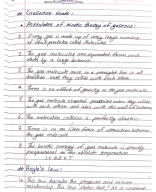 Gaseous State :
Postulates of kinetic theory of gaseous :
1. Every gas is made up of very large number
of small particles called molecules.
2. The gas molecules are separated from each
other by a large distance.
3. The gas molecules move in a straight line in all
direction until they collide with each other.
4. There is no effect of gravity in the gas molecules.
5. The gas molecules
with each other and also with the wall of container.
6. The molecules collision is perfectly elastic.
7. There is no little force of attraction between
the gas molecules.
8. The kinetic energy of gas molecule is directly
proportional to the absolute temperature
i.e. K.E ∝ T
Boyle's law :
This law describe the pressure and volume
relationship. This law states that, "At a constant